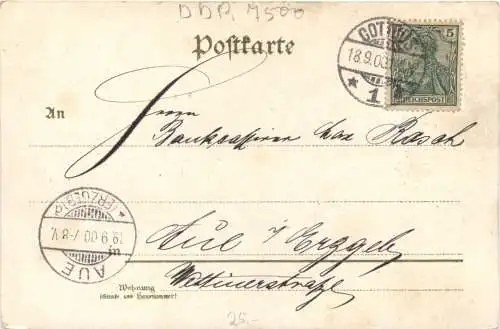 DDR 7500
Postkarte
COTTBUS
18.9.00
* 1
5
REICHSPOST
An
Herrn
Bankkassierer Max Rasch
AUE
* (ERZGEB.) *
19 9 00 7-8 V.
in
Aue i/ Erzgeb.
Wettinerstraße
Wohnung
(Straße und Hausnummer)
25.-